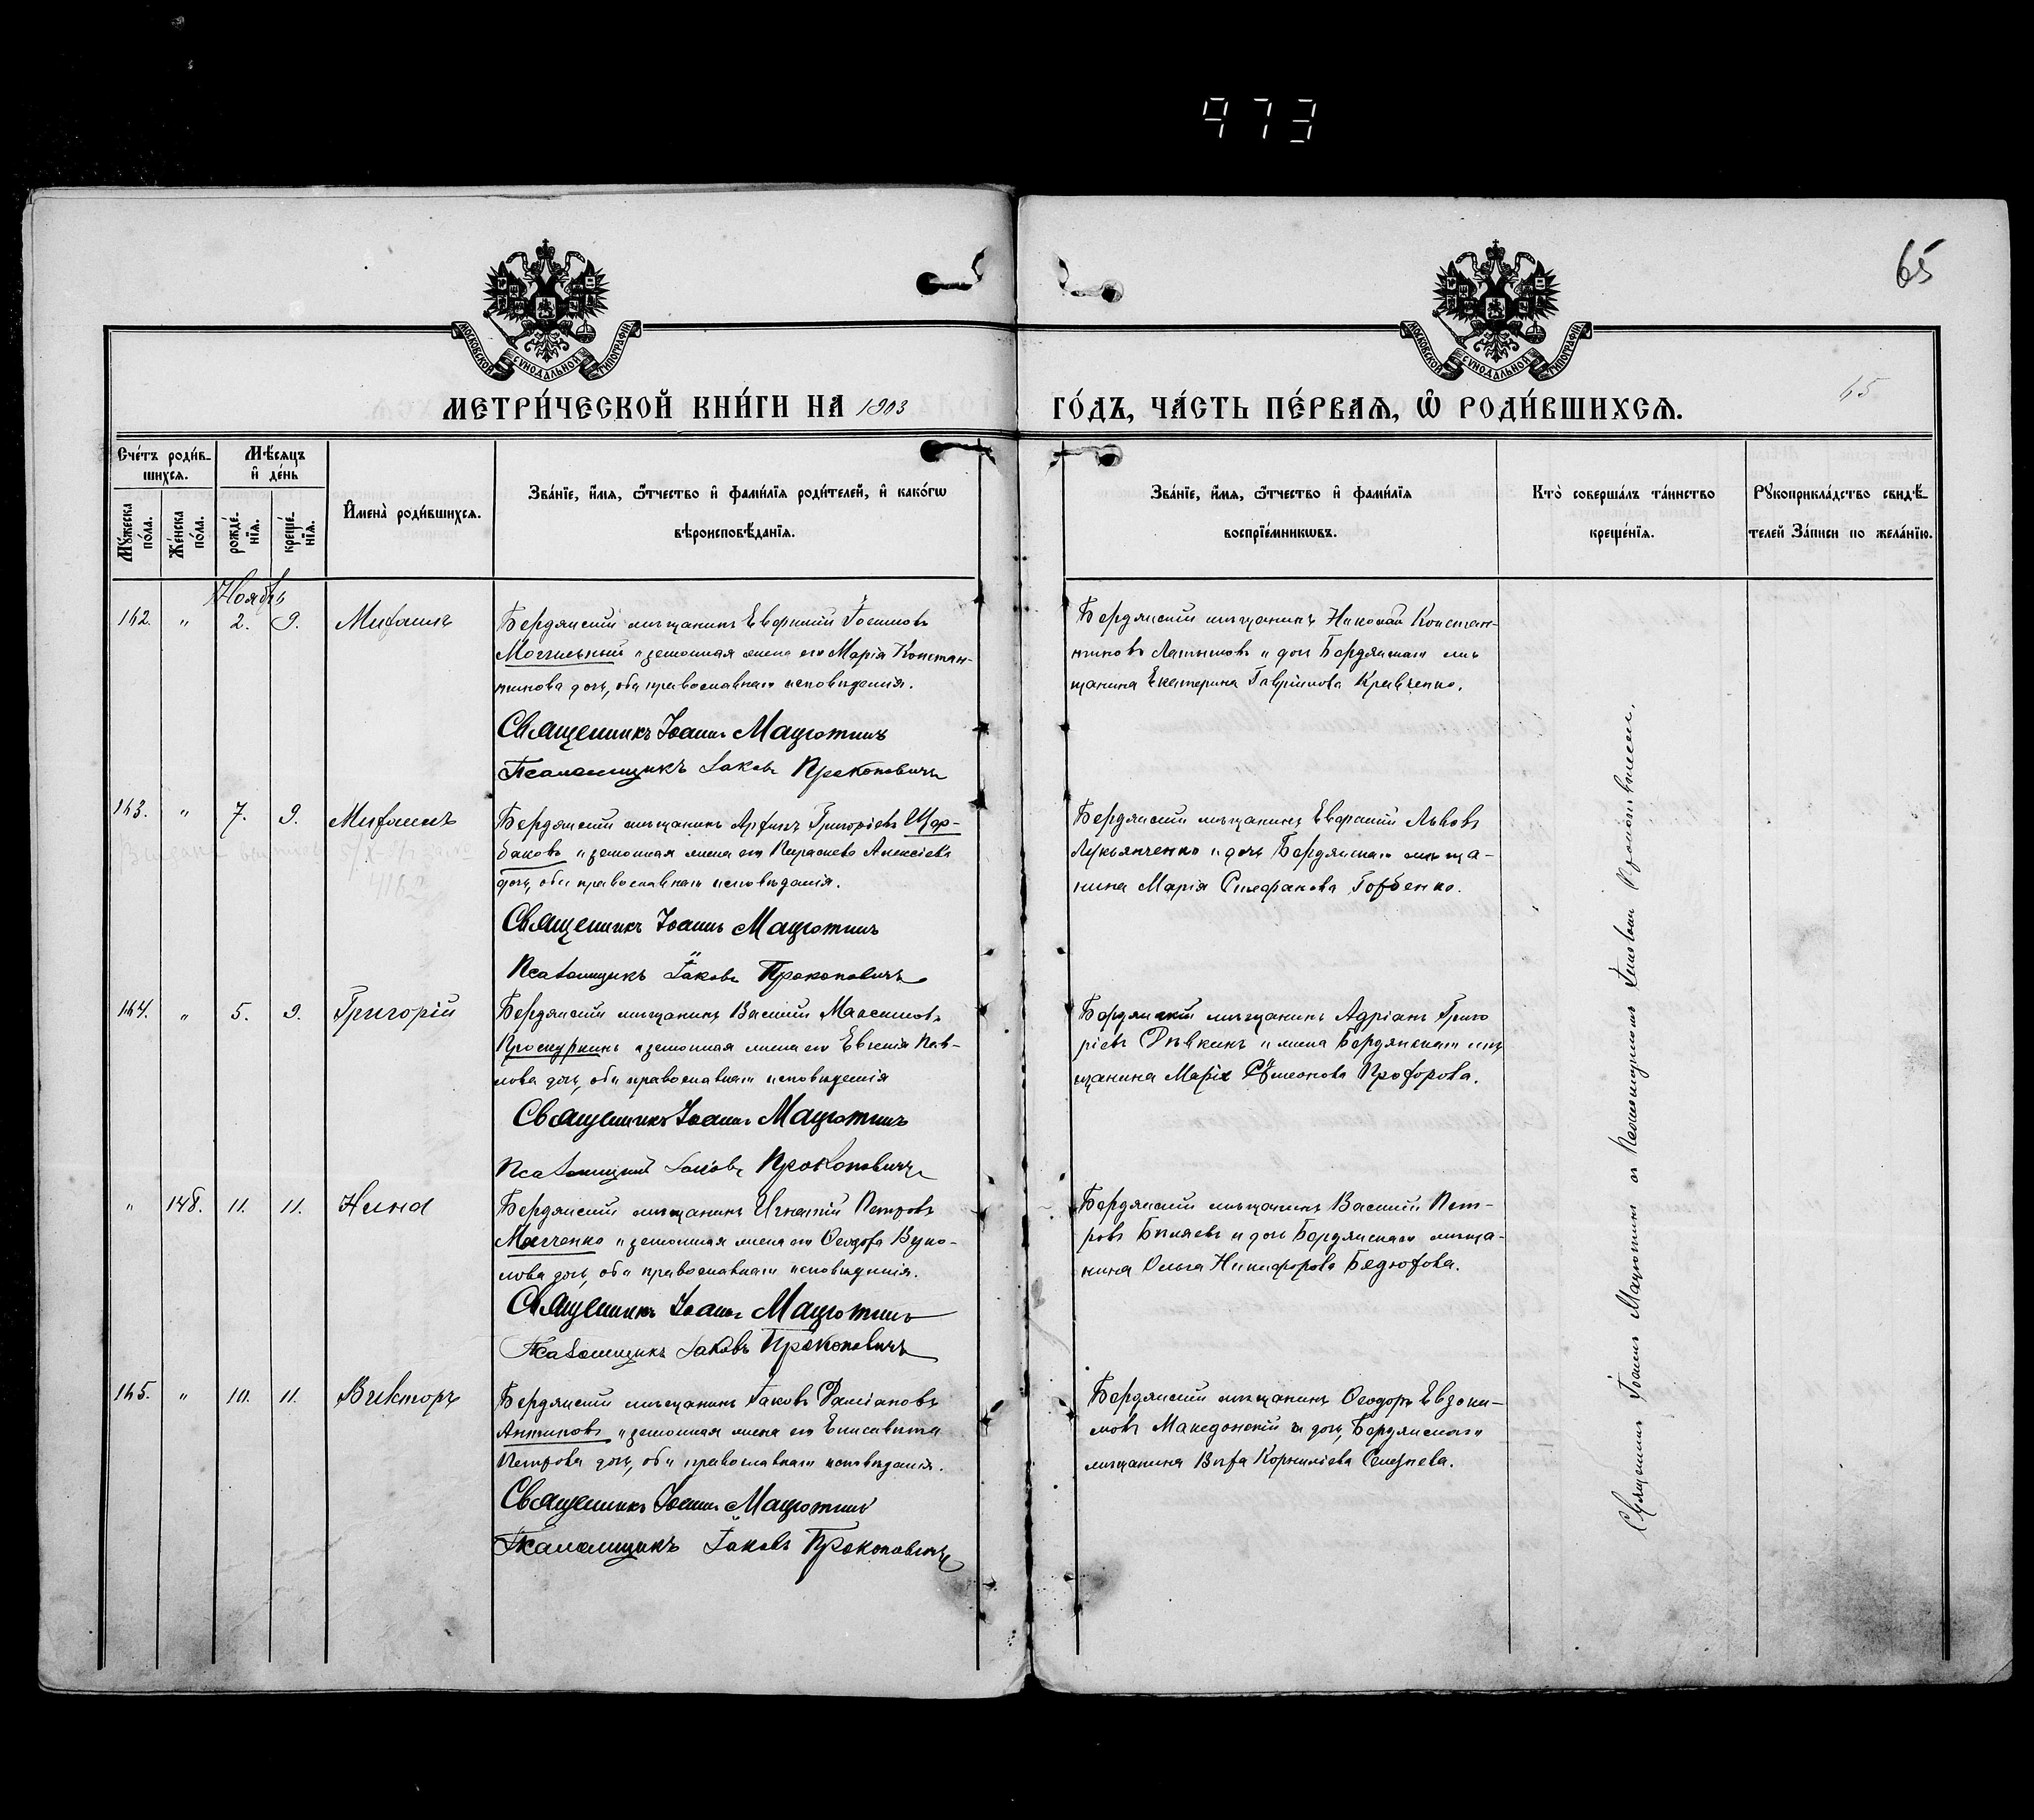 473
65
МОСКОВСКОЙ СУНОДАЛЬНОЙ ТИПОГРАФІИ
МОСКОВСКОЙ СУНОДАЛЬНОЙ ТИПОГРАФІИ
65
МЕТРИ́ЧЕСКОЙ КНИ́ГИ НА 1903
ГО́ДЪ, ЧА́СТЬ ПЕ́РВАѦ, Ѽ РОДИ́ВШИХСѦ.
Сче́тъ роди́в-
шихсѧ.
Мꙋ́жеска по́ла.
Же́нска по́ла.
Мѣ́сѧцъ и҆ де́нь
рожде́-нїѧ.
креще́-нїѧ.
И҆мена̀ роди́вшихсѧ.
Зва́нїе, и҆́мѧ, ѻ҆́тчество и҆ фами́лїѧ роди́телей, и҆ како́гѡ
вѣроисповѣ́данїѧ.
Зва́нїе, и҆́мѧ, ѻ҆́тчество и҆ фами́лїѧ
воспрїе́мникѡвъ.
Кто̀ соверша́лъ та́инство
креще́нїѧ.
Рꙋкоприкла́дство свидѣ́-
телей За́писи по жела́нїю.
Ноябрь
162. " 2. 9. Михаилъ
Бердянскій мѣщанинъ Евфимій Іоакимовъ
Могильный и законная жена его Марія Констан-
тинова дочь, оба православнаго исповѣданія.
Священникъ Іоаннъ Мацютинъ
Псаломщикъ Іаковъ Прокоповичъ
Бердянскій мѣщанинъ Николай Констан-
тиновъ Латышовъ и дочь Бердянскаго мѣ
щанина Екатерина Гавріилова Кравченко.
163. " 7. 9. Михаилъ
Бердянскій мѣщанинъ Архипъ Григоріевъ Щер-
баковъ и законная жена его Параскева Алексіева
дочь, оба православнаго исповѣданія.
Священникъ Іоаннъ Мацютинъ
Псаломщикъ Іаковъ Прокоповичъ
Бердянскій мѣщанинъ Евфимій Львовъ
Лукьянченко и дочь Бердянскаго мѣща-
нина Марія Стефанова Горбенко.
164. " 5. 9. Григорій
Бердянскій мѣщанинъ Василій Максимовъ
Проскуркинъ и законная жена его Евгенія Пав-
лова дочь, оба православнаго исповѣданія
Священникъ Іоаннъ Мацютинъ
Псаломщикъ Іаковъ Прокоповичъ
Бердянскій мѣщанинъ Адріанъ Григо
ріевъ Рѣвкинъ и жена Бердянскаго мѣ
щанина Марія Сѵмеонова Прохорова.
" 148. 11. 11. Нина
Бердянскій мѣщанинъ Игнатій Петровъ
и законная жена его Ѳеодора Вуко-
лова дочь, оба православнаго исповѣданія.
Священникъ Іоаннъ Мацютинъ
Псаломщикъ Іаковъ Прокоповичъ
Бердянскій мѣщанинъ Василій Пет-
ровъ Бѣляевъ и дочь Бердянскаго мѣща-
нина Ольга Никифорова Бедюхова.
165. " 10. 11. Викторъ
Бердянскій мѣщанинъ Іаковъ Даміановъ
Антиповъ и законная жена его Елисавета
Петрова дочь, оба православнаго исповѣданія.
Священникъ Іоаннъ Мацютинъ
Псаломщикъ Іаковъ Прокоповичъ
Бердянскій мѣщанинъ Ѳеодоръ Евдоки-
мовъ Македонскій и дочь Бердянскаго
мѣщанина Вѣра Корниліева Селезнева.
Священникъ Іоаннъ Мацютинъ съ Псаломщикомъ Іаковомъ Прокоповичемъ.